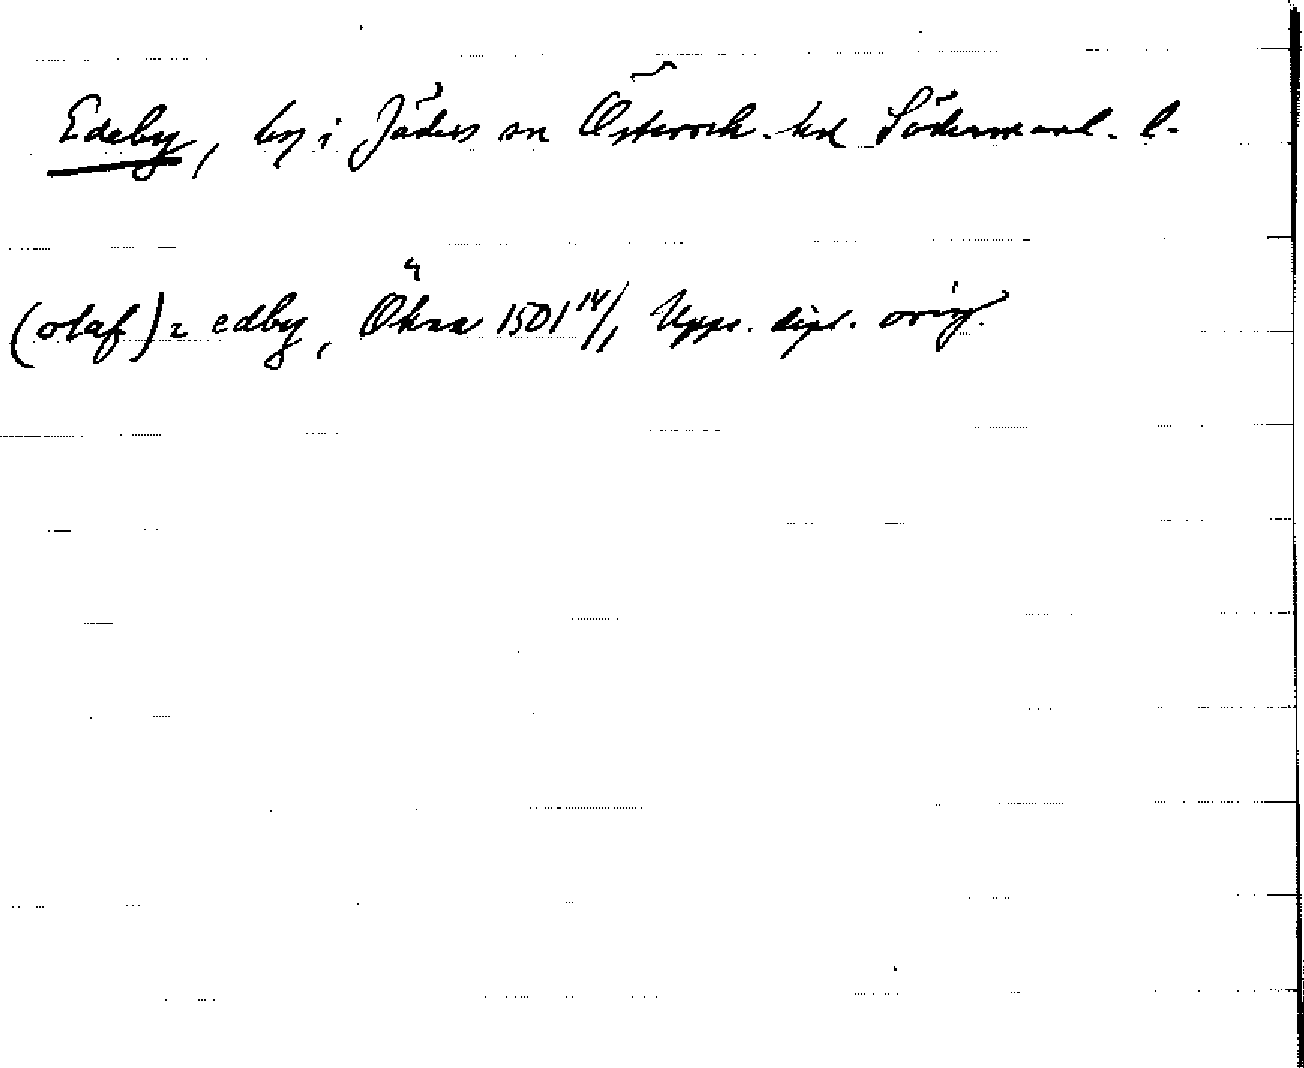 Edeby, by i Jäders sn Österrek. hd Södermanl. l.
(olaf) i edby, Ökna 1501 14/1 Upps. dipl. orig.